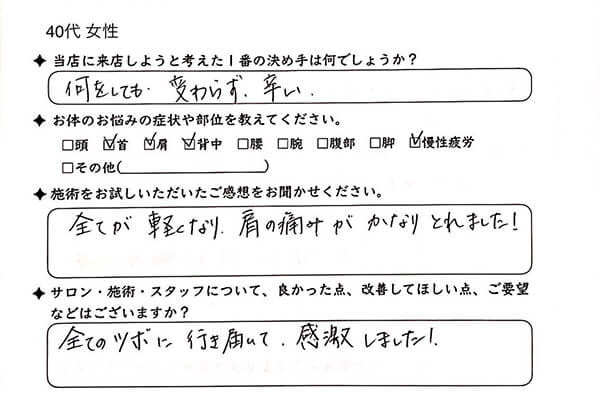 40代 女性
✦ 当店に来店しようと考えた1番の決め手は何でしょうか？
何をしても、変わらず、辛い、
✦ お体のお悩みの症状や部位を教えてください。
□頭 ☑首 ☑肩 ☑背中 □腰 □腕 □腹部 □脚 ☑慢性疲労
□その他( )
✦ 施術をお試しいただいたご感想をお聞かせください。
全てが軽くなり、肩の痛みがかなりとれました！
✦ サロン・施術・スタッフについて、良かった点、改善してほしい点、ご要望
などはございますか？
全てのツボに行き届いて、感激しました！